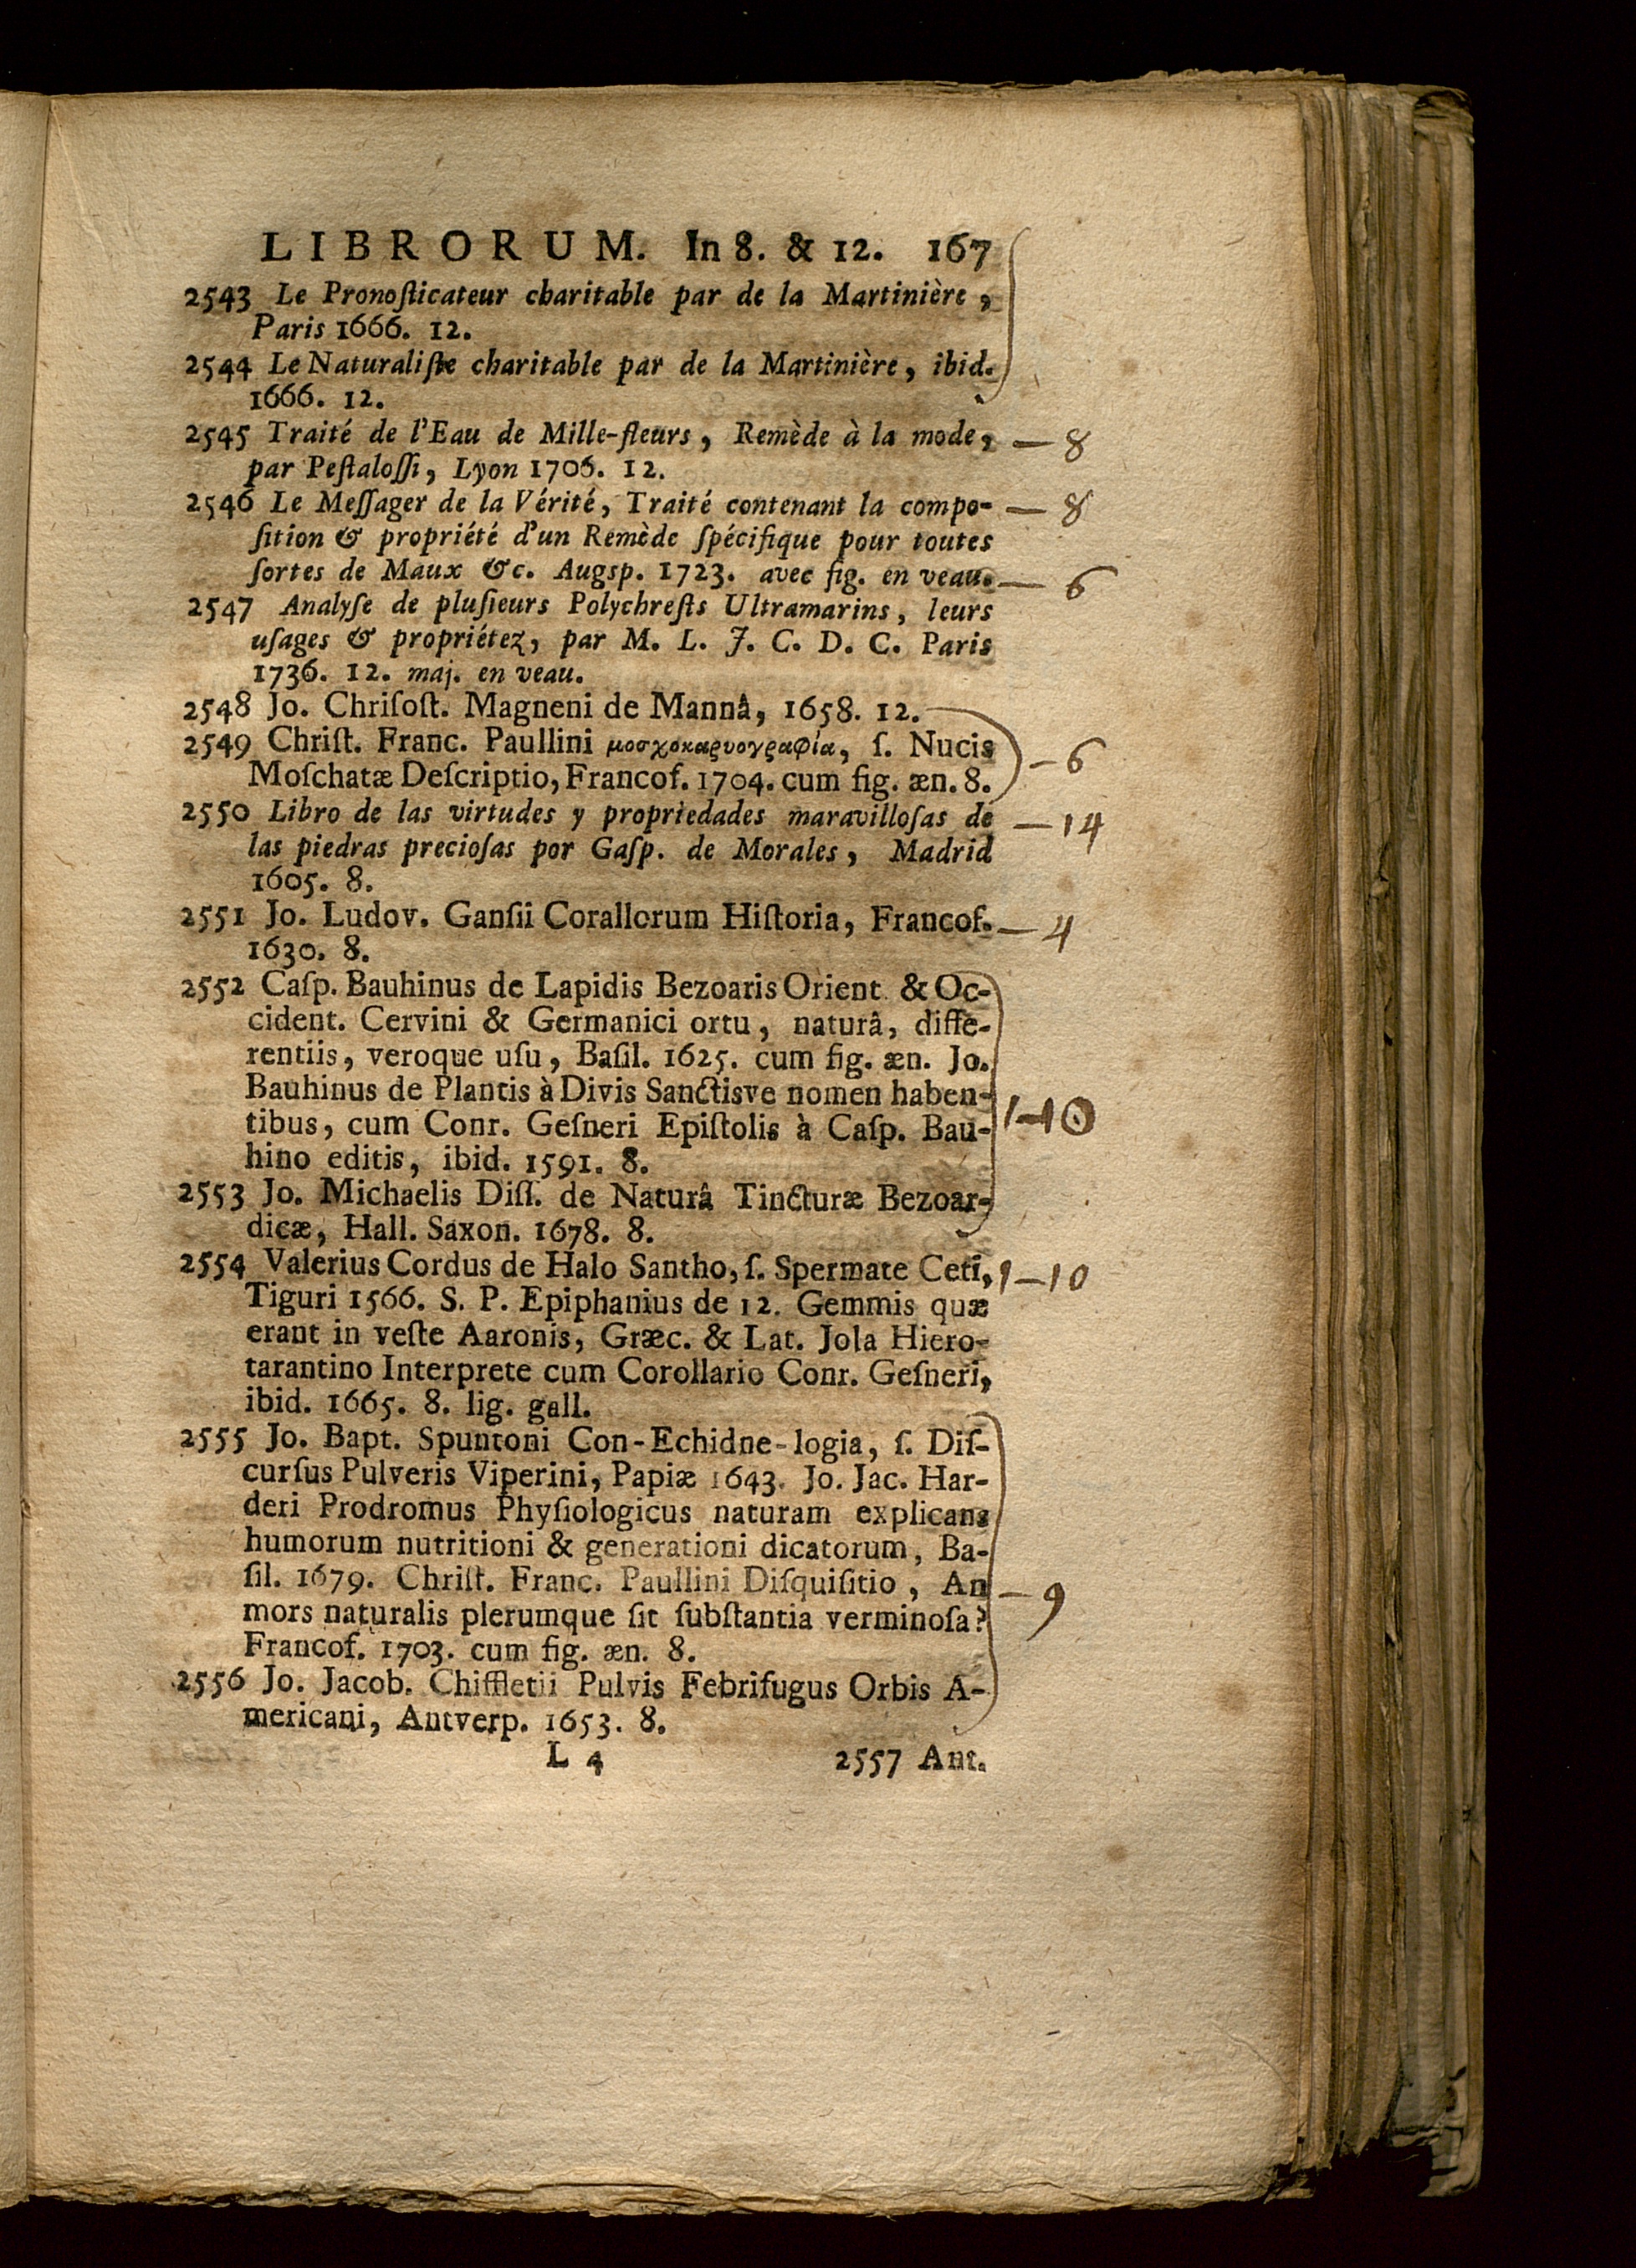 LIBRORUM. In 8. & 12. 167
2543 Le Pronoſticateur charitable par de la Martinière,
Paris 1666. 12.
2544 Le Naturaliſte charitable par de la Martinière, ibid.
1666. 12.
2545 Traité de l'Eau de Mille-fleurs, Remède à la mode, — 8
par Peſtaloſſi, Lyon 1706. 12.
2546 Le Meſſager de la Vérité, Traité contenant la compo- — 8
ſition & propriété d'un Remède ſpécifique pour toutes
ſortes de Maux &c. Augsp. 1723. avec fig. en veau. — 6
2547 Analyſe de pluſieurs Polychreſts Ultramarins, leurs
uſages & propriétez, par M. L. J. C. D. C. Paris
1736. 12. maj. en veau.
2548 Jo. Chriſoſt. Magneni de Mannâ, 1658. 12.
2549 Chriſt. Franc. Paullini μοσχοκαρυογραφία, ſ. Nucis — 6
Moſchatæ Deſcriptio, Francof. 1704. cum fig. æn. 8.
2550 Libro de las virtudes y propriedades maravilloſas de — 14
las piedras precioſas por Gaſp. de Morales, Madrid
1605. 8.
2551 Jo. Ludov. Ganſii Corallorum Hiſtoria, Francof. — 4
1630. 8.
2552 Caſp. Bauhinus de Lapidis Bezoaris Orient. & Oc-
cident. Cervini & Germanici ortu, naturâ, diffe-
rentiis, veroque uſu, Baſil. 1625. cum fig. æn. Jo.
Bauhinus de Plantis à Divis Sanctisve nomen haben-
tibus, cum Conr. Geſneri Epiſtolis à Caſp. Bau- 1—10
hino editis, ibid. 1591. 8.
2553 Jo. Michaelis Diſſ. de Naturâ Tincturæ Bezoar-
dicæ, Hall. Saxon. 1678. 8.
2554 Valerius Cordus de Halo Santho, ſ. Spermate Ceti, 1—10
Tiguri 1566. S. P. Epiphanius de 12. Gemmis quæ
erant in veſte Aaronis, Græc. & Lat. Jola Hiero-
tarantino Interprete cum Corollario Conr. Geſneri,
ibid. 1665. 8. lig. gall.
2555 Jo. Bapt. Spuntoni Con-Echidne-logia, ſ. Diſ-
curſus Pulveris Viperini, Papiæ 1643. Jo. Jac. Har-
deri Prodromus Phyſiologicus naturam explicans
humorum nutritioni & generationi dicatorum, Ba-
ſil. 1679. Chriſt. Franc. Paullini Diſquiſitio, An — 9
mors naturalis plerumque ſit ſubſtantia verminoſa?
Francof. 1703. cum fig. æn. 8.
2556 Jo. Jacob. Chiffletii Pulvis Febrifugus Orbis A-
mericani, Antverp. 1653. 8.
L 4 2557 Ant.